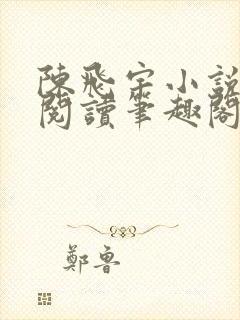 陳飛宗小說
閱讀筆趣閣
鄭魯